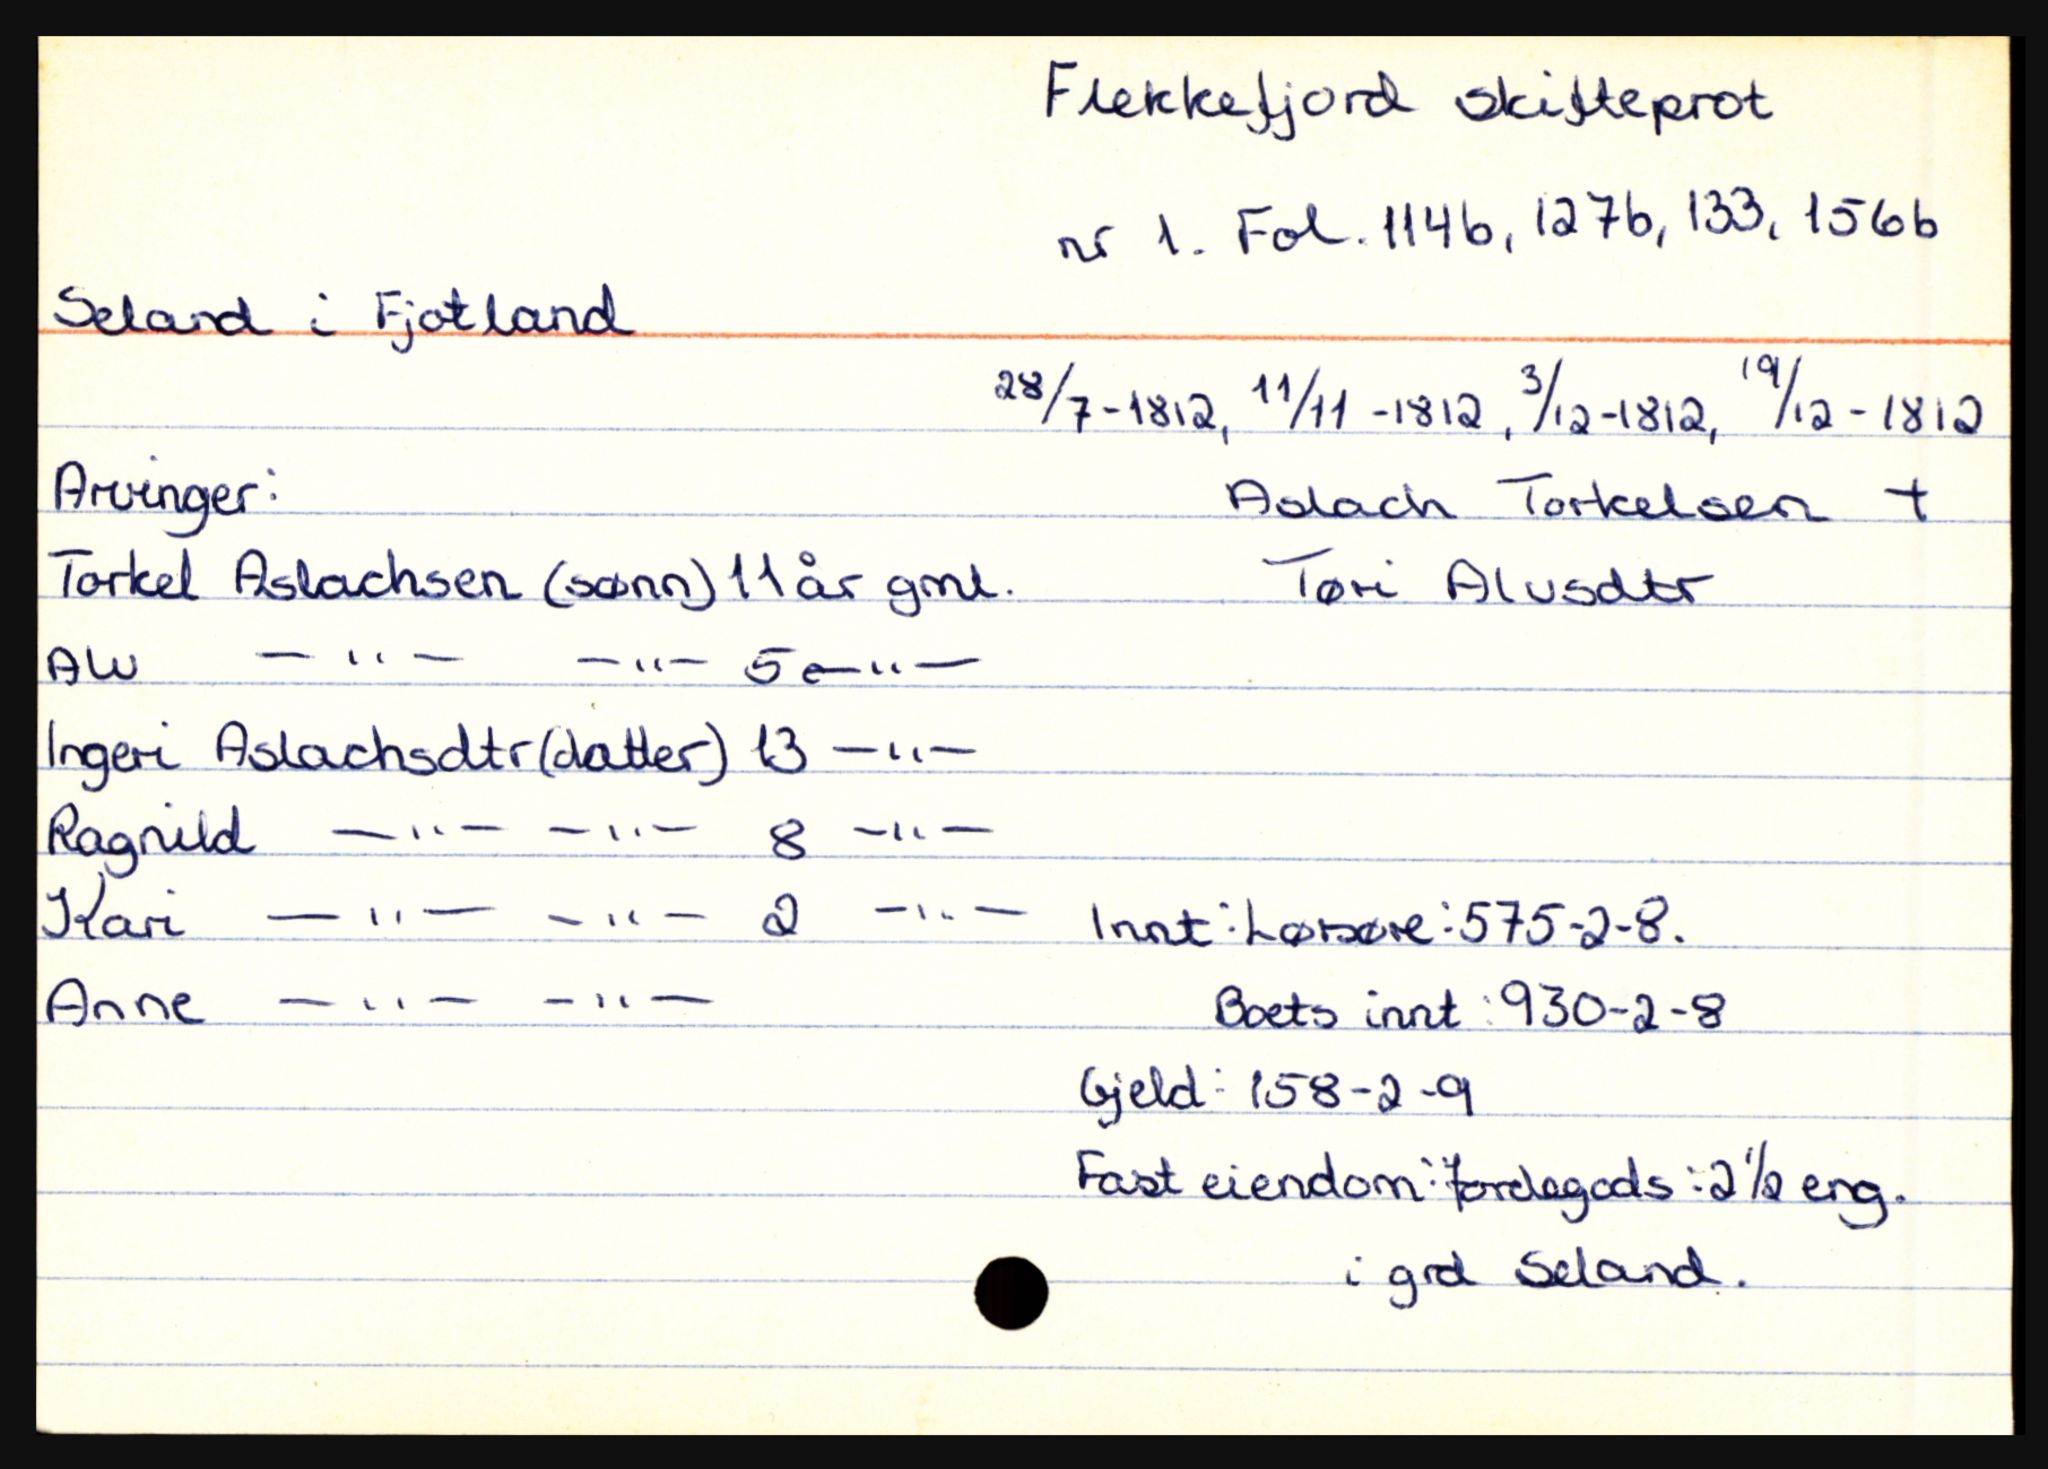 Flekkefjord skifteprot
nr 1. Fol. 114b, 127b, 133, 156b
Seland i Fjotland
28/7-1812, 11/11-1812, 3/12-1812, 19/12-1812
Arvinger: Aslach Torkelsen †
Torkel Aslachsen (sønn) 11 år gml. Tøri Alvsdtr
Alv —"— —"— 5 —"—
Ingeri Aslachsdtr (datter) 13 —"—
Ragnild —"— —"— 8 —"—
Kari —"— —"— 2 —"— Innt: Løsøre: 575-2-8.
Anne —"— —"— Boets innt: 930-2-8
Gjeld: 158-2-9
Fast eiendom: Jordegods: 2 1/2 eng.
i grd Seland.